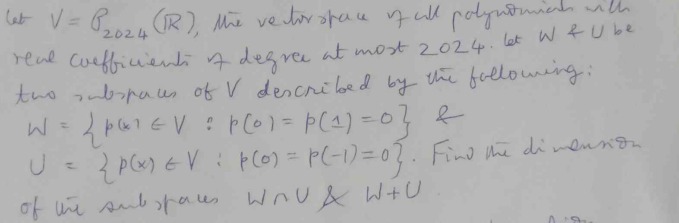 let V = P₂₀₂₄(ℝ), the vector space of all polynomials with
real coefficients of degree at most 2024. let W & U be
two subspaces of V described by the following:
W = {p(x) ∈ V : p(0) = p(1) = 0} &
U = {p(x) ∈ V : p(0) = p(-1) = 0}. Find the dimension
of the subspaces W∩U & W+U